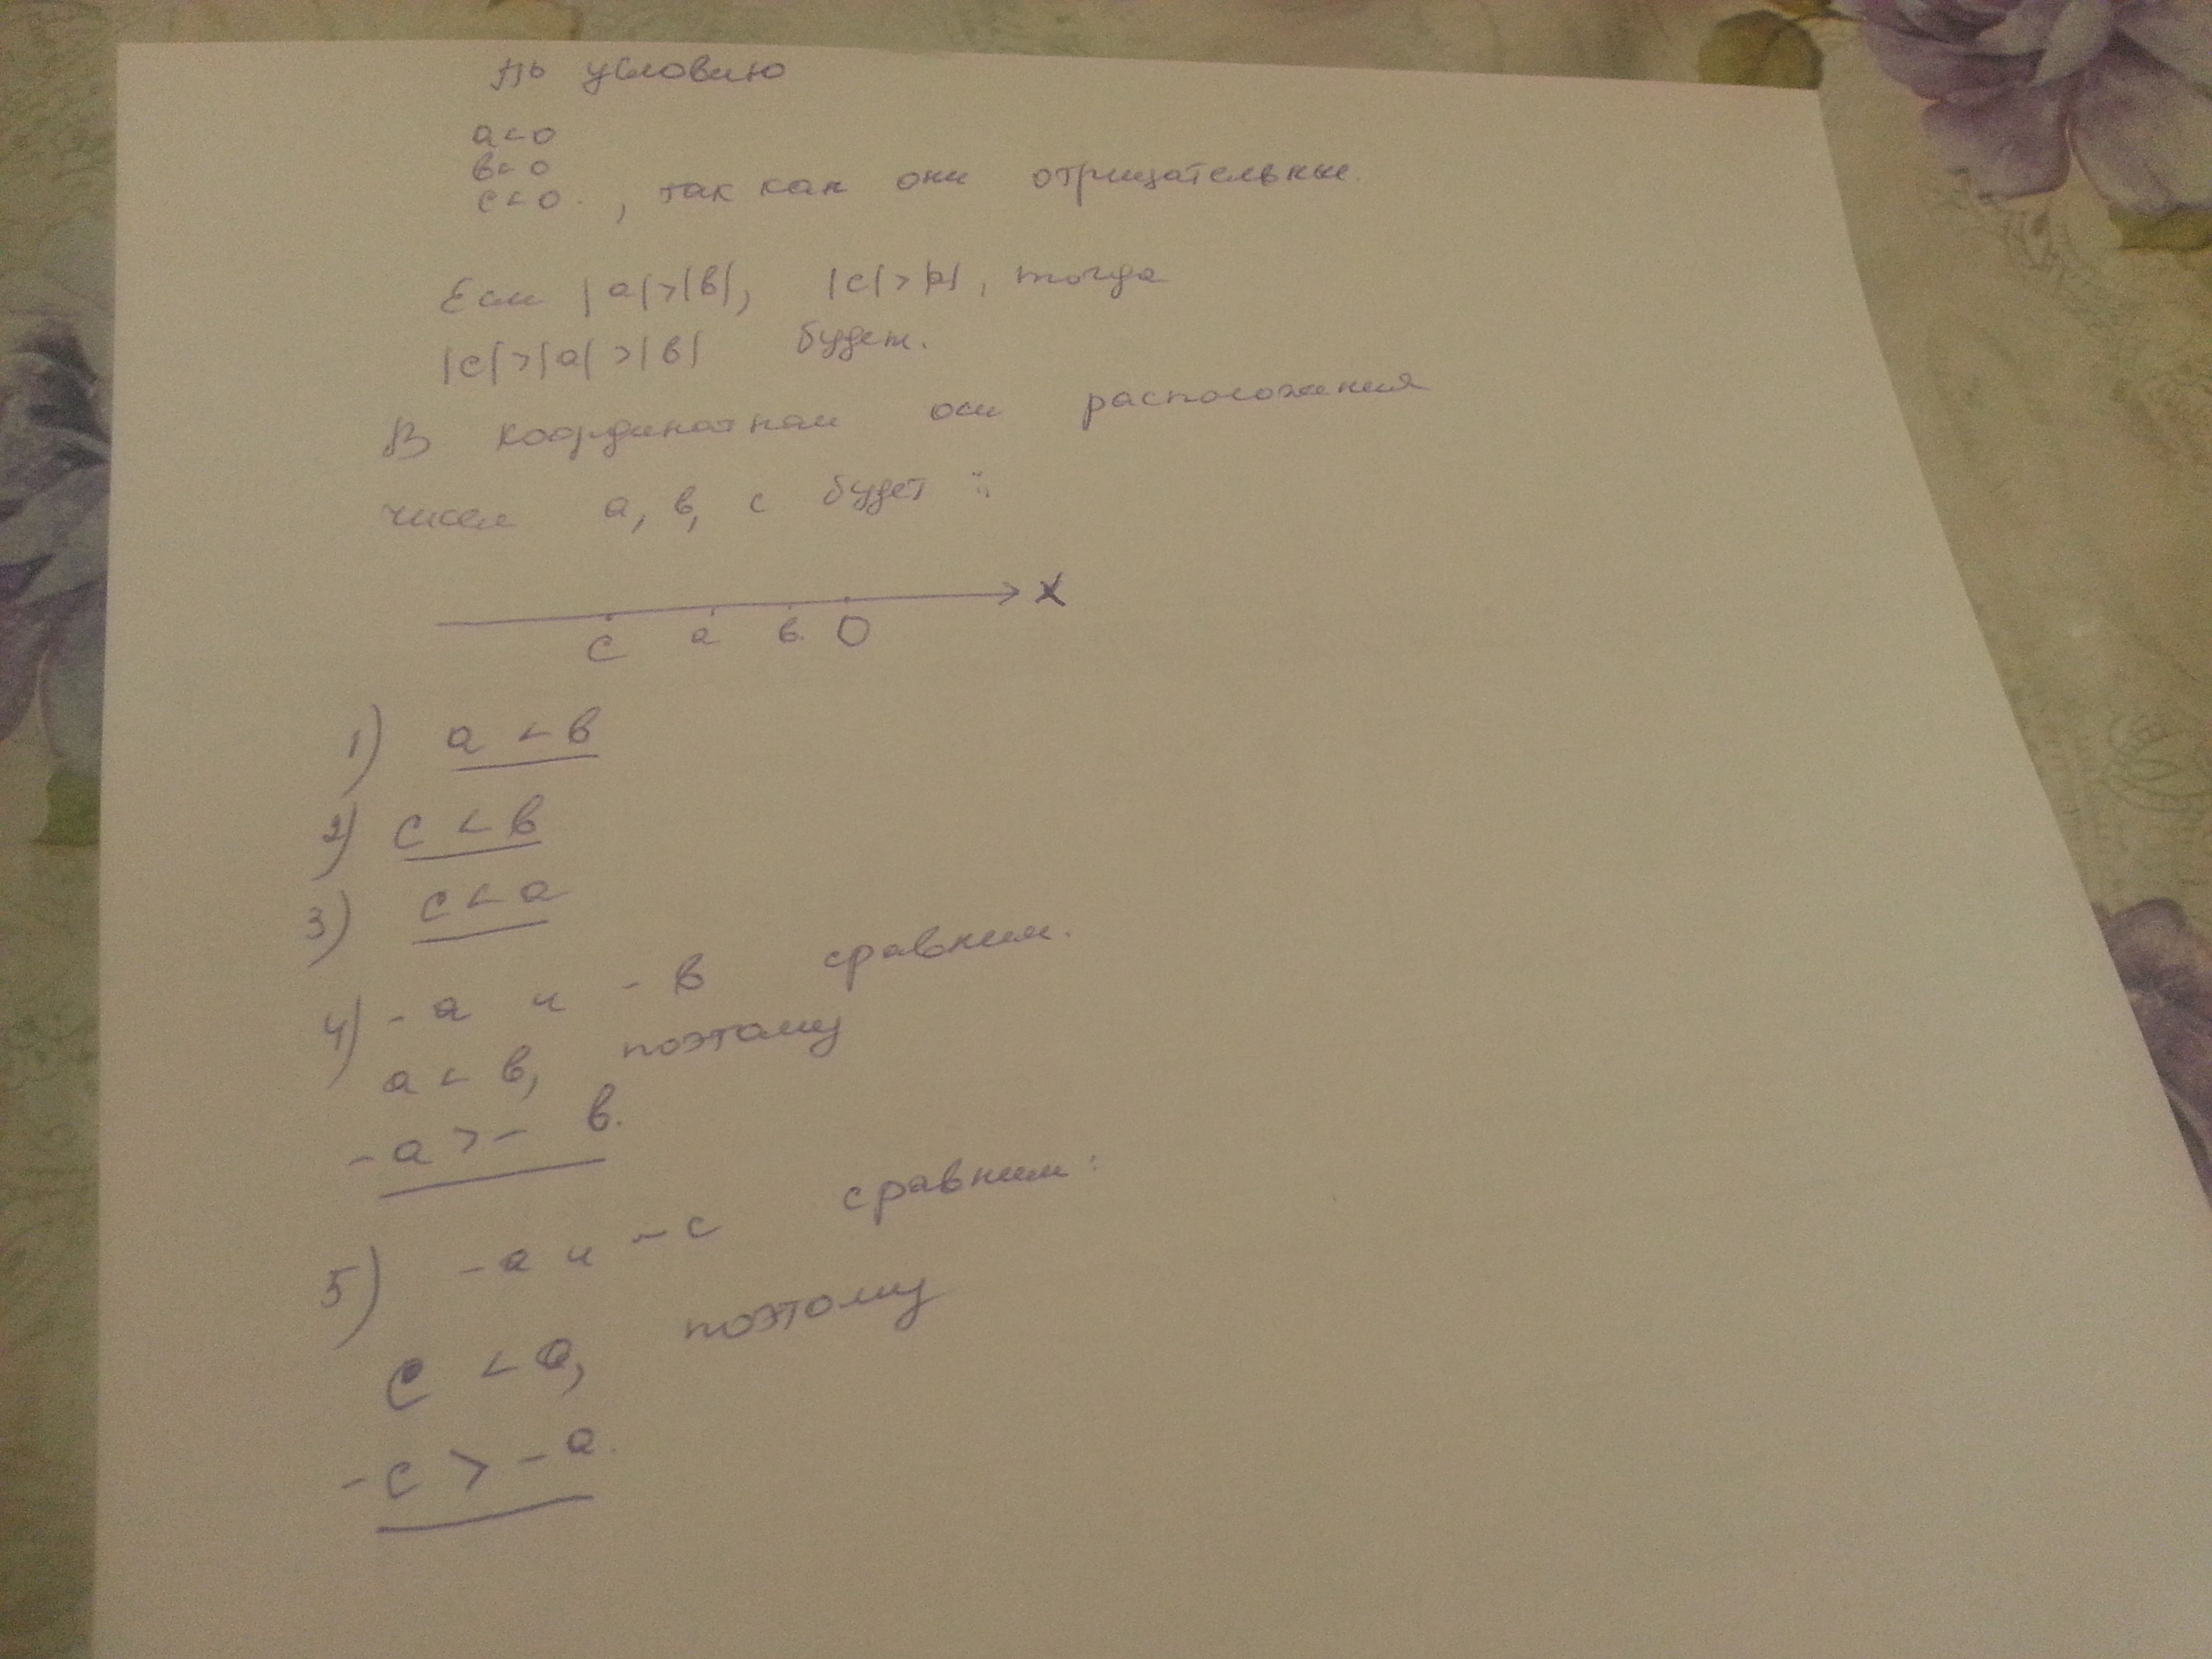 По условию
a < 0
в < 0
c < 0. , так как они отрицательные.
Если |a|>|в|, |c|>|a|, тогда
|c|>|a|>|в| будет.
В координатной оси расположения
чисел a, в, c будет :
c a в. 0 X
1) a < в
2) c < в
3) c < a
4) -a и -в сравним.
a < в, поэтому
-a > - в.
5) -a и -c сравним:
c < a, поэтому
-c > -a.